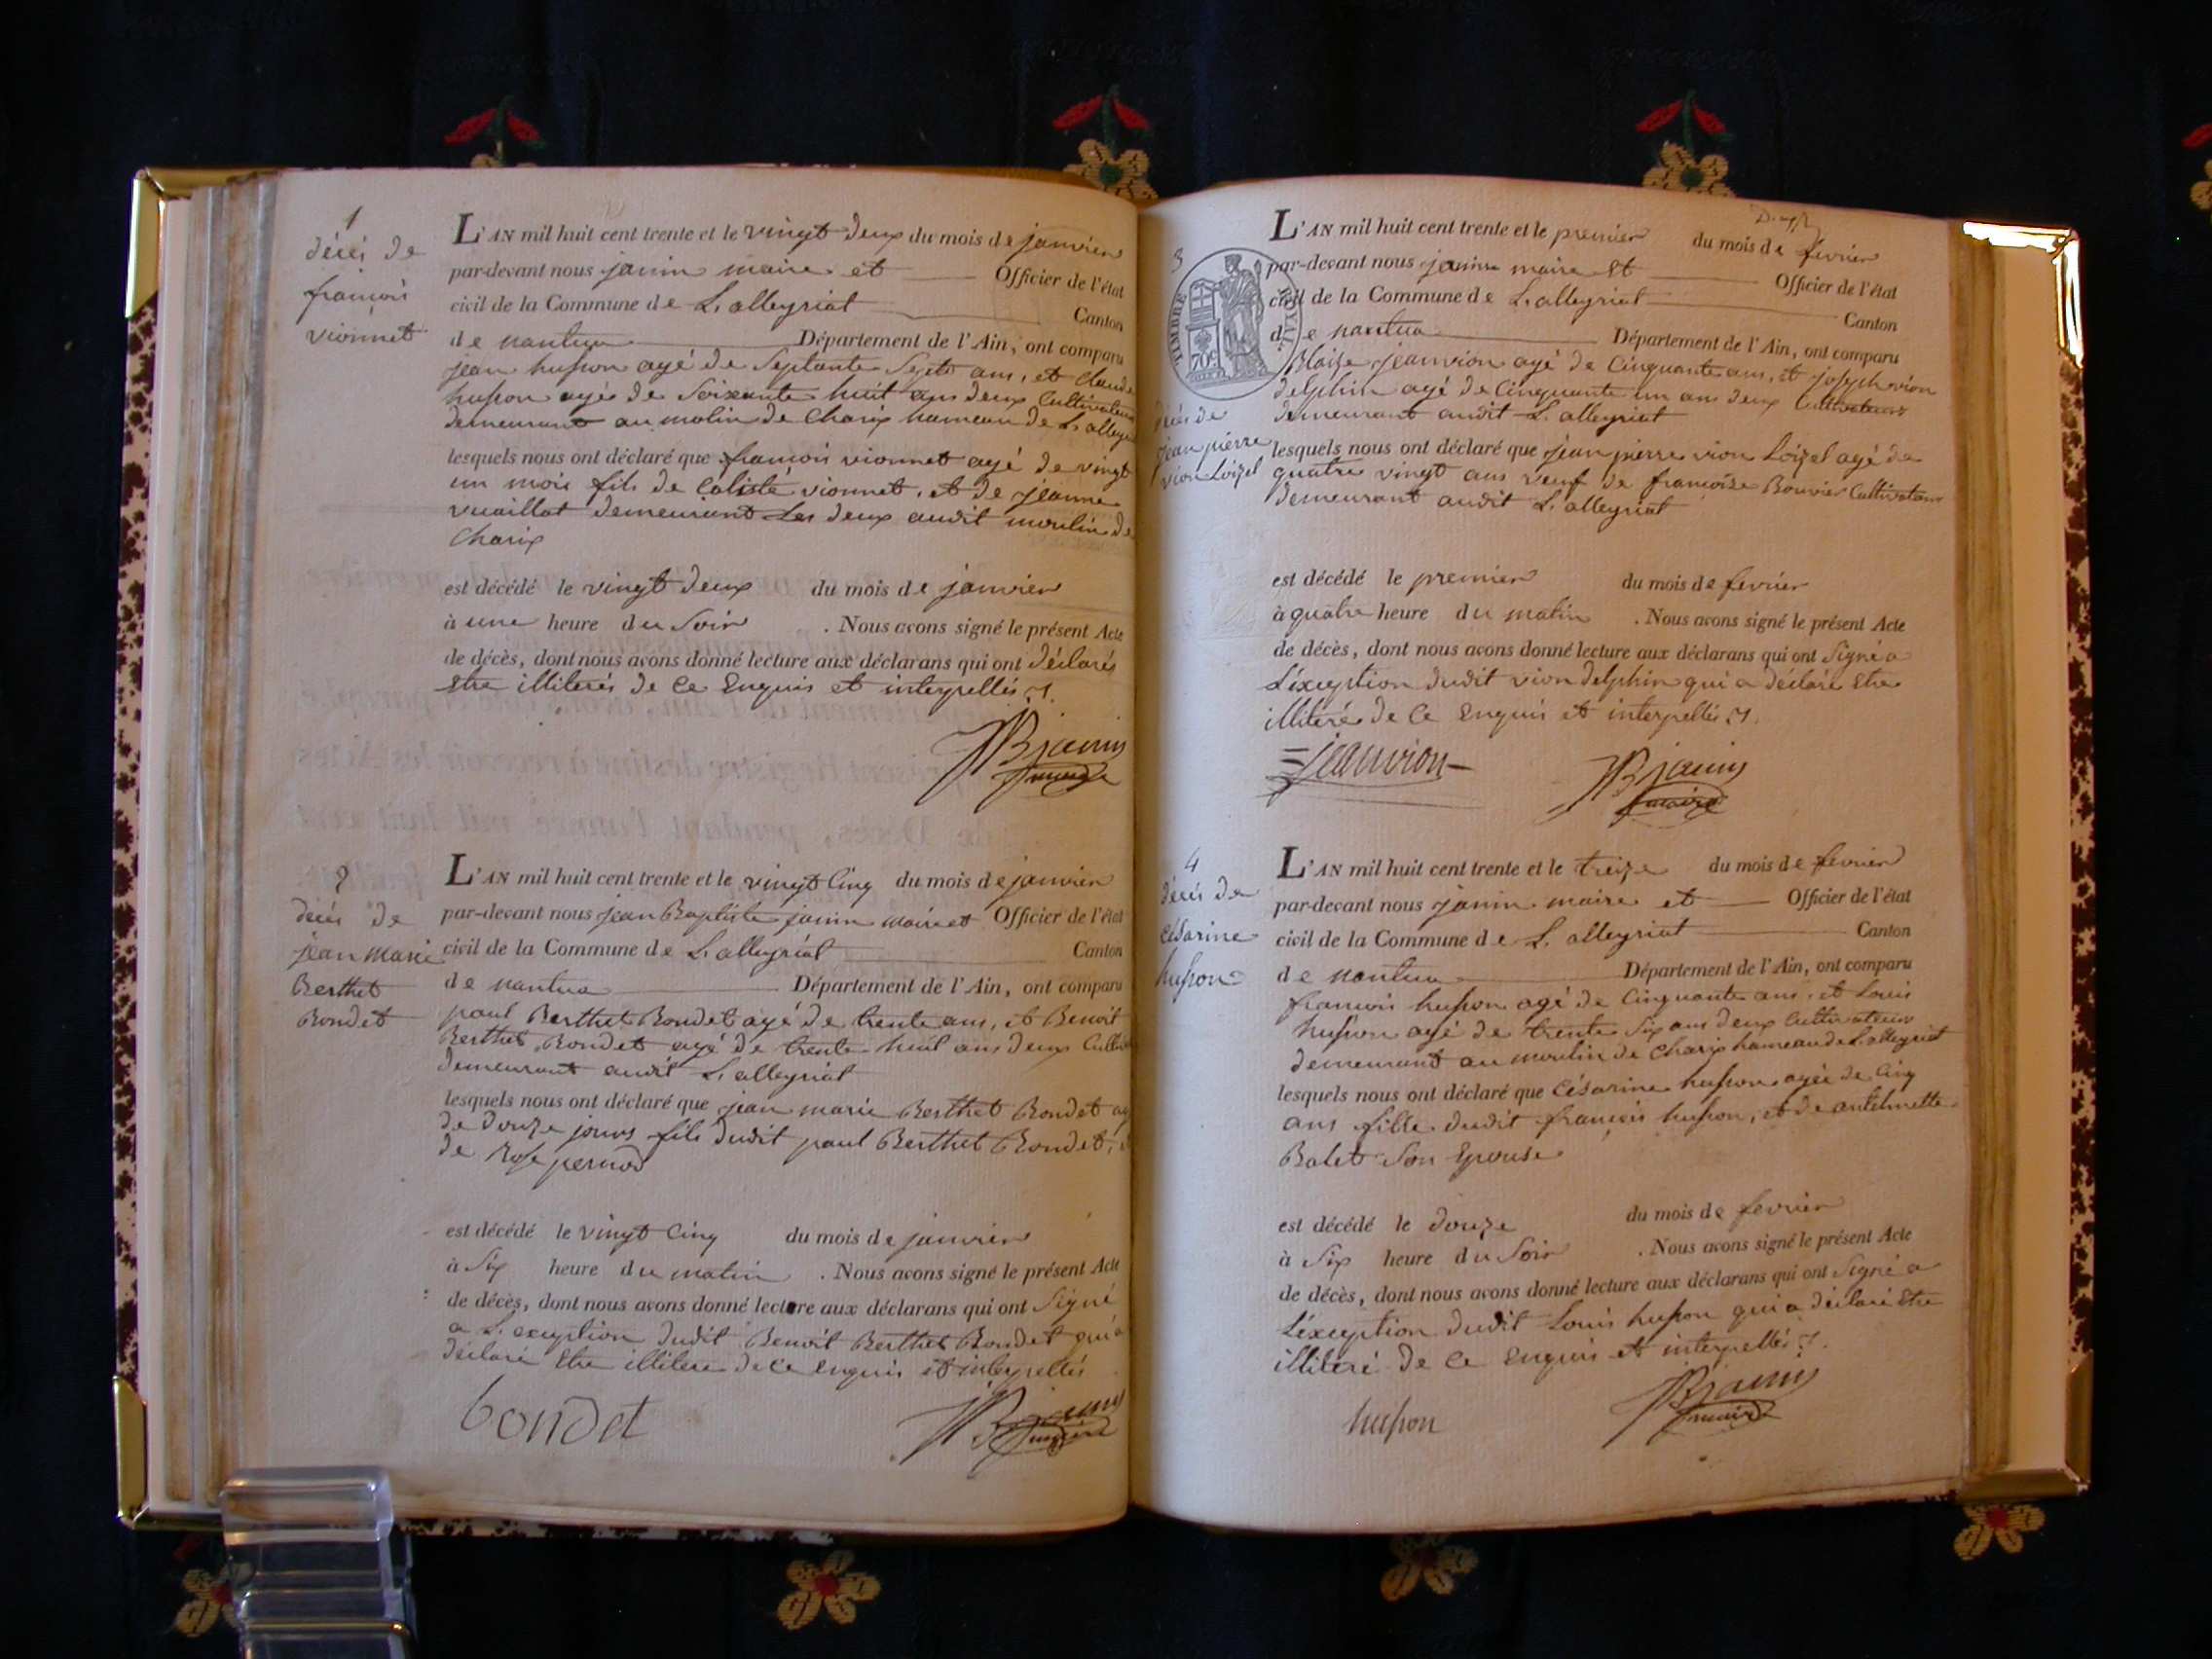 1
décés de
francois
vionnet
L'AN mil huit cent trente et le vingt deux du mois de janvier
par-devant nous janin maire et Officier de l'état
civil de la Commune de L. alleyriat Canton
de nantua Département de l'Ain, ont comparu
jean husson agé de Septante Septs ans, et Claude
husson agés de Soixante huit ans deux Cultivateurs
demeurant au molin de Charix hameau de L. alleyr
lesquels nous ont déclaré que francois vionnet agé de vingt
un mois fils de Caliste vionnet, et de jeanne
vuaillat demeurant Les deux audit moulin de
Charix
est décédé le vingt deux du mois de janvier
à une heure du Soir . Nous avons signé le présent Acte
de décès, dont nous avons donné lecture aux déclarans qui ont déclarés
Etre illiterés de Ce Enquis et interpellés
JB janin
maire
2
décés de
jean marie
Berthet
Bondet
L'AN mil huit cent trente et le vingt Cinq du mois de janvier
par-devant nous jean Baptiste janin maire et Officier de l'état
civil de la Commune de L. alleyriat Canton
de nantua Département de l'Ain, ont comparu
paul Berthet Bondet agé de trente ans, et Benoit
Berthet Bondet agé de trente huit ans deux Cultiv
demeurant audit L. alleyriat
lesquels nous ont déclaré que jean marie Berthet Bondet ag
de douze jours fils dudit paul Berthet Bondet,
de Rose pernod
est décédé le vingt Cinq du mois de janvier
à Six heure du matin . Nous avons signé le présent Acte
de décès, dont nous avons donné lecture aux déclarans qui ont Signé
a L. exception dudit Benoit Berthet Bondet qui a
déclaré Etre illitere de Ce enquis et interpellés
bondet
JB janin
maire
3
TIMBRE ROYAL
70c
décés de
jean pierre
vion Loizel
L'AN mil huit cent trente et le premier du mois de fevrier
par-devant nous janin maire Et Officier de l'état
civil de la Commune de L. alleyriat Canton
de nantua Département de l'Ain, ont comparu
Blaise jeanvion agé de Cinquante ans, et joseph vion
delphin agé de Cinquante un ans deux Cultivateurs
demeurant audit L. alleyriat
lesquels nous ont déclaré que jean pierre vion Loizel agé de
quatre vingt ans veuf de francoise Bouvier Cultivateur
demeurant audit L. alleyriat
est décédé le premier du mois de fevrier
à quatre heure du matin . Nous avons signé le présent Acte
de décès, dont nous avons donné lecture aux déclarans qui ont Signé a
L'éxception dudit vion delphin qui a déclaré Etre
illiteré de Ce Enquis et interpellés
jeanvion
JB janin
maire
4
décés de
Césarine
husson
L'AN mil huit cent trente et le treize du mois de fevrier
par-devant nous janin maire et Officier de l'état
civil de la Commune de L. alleyriat Canton
de nantua Département de l'Ain, ont comparu
francois husson agé de Cinquante ans, et Louis
husson agé de trente Six ans deux Cultivateurs
demeurant au moulin de Charix hameau de L. alleyriat
lesquels nous ont déclaré que Césarine husson agée de Cinq
ans fille dudit francois husson, et de antelmette
Balet Son Epouse
est décédé le douze du mois de fevrier
à Six heure du Soir . Nous avons signé le présent Acte
de décès, dont nous avons donné lecture aux déclarans qui ont Signé a
L'éxception dudit Louis husson qui a déclaré Etre
illiteré de Ce Enquis et interpellés
husson
JB janin
maire